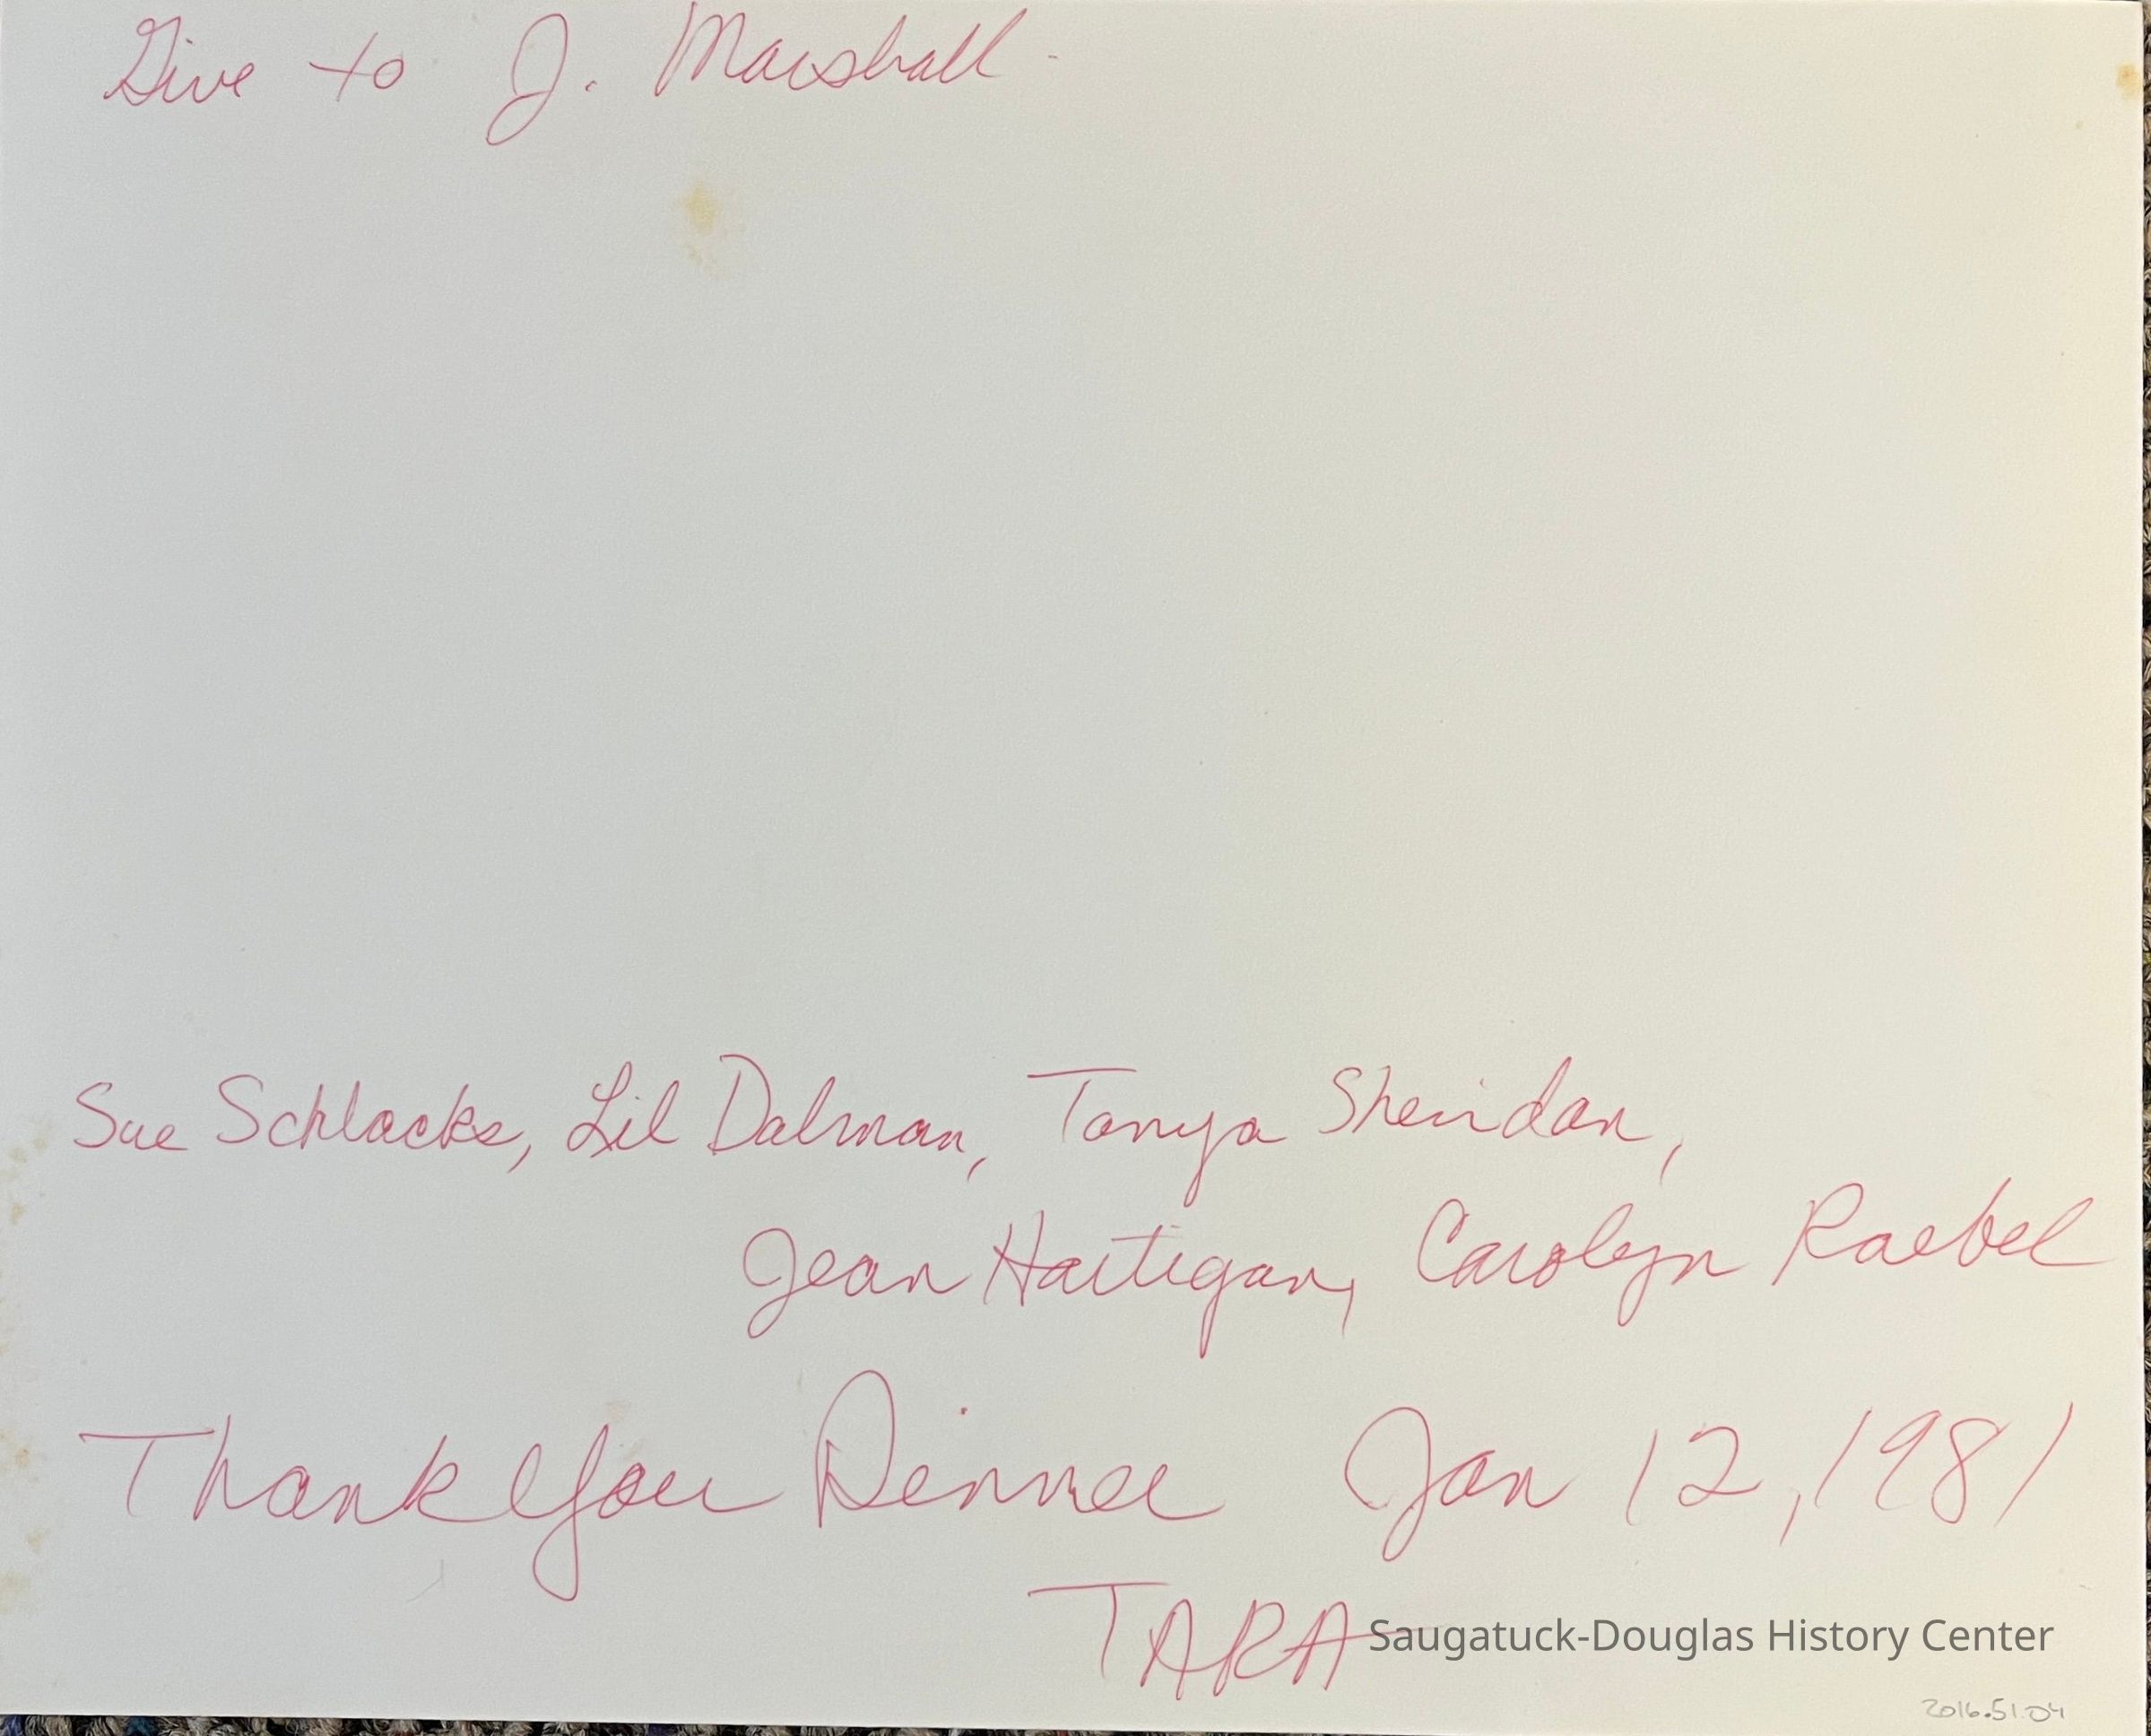 Give to J. Marshall -
Sue Schlacks, Lil Dalman, Tanya Sheridan,
Jean Hartigan, Carolyn Raebel
Thank You Dinner Jan 12, 1981
TARA
Saugatuck-Douglas History Center
2016.51.04